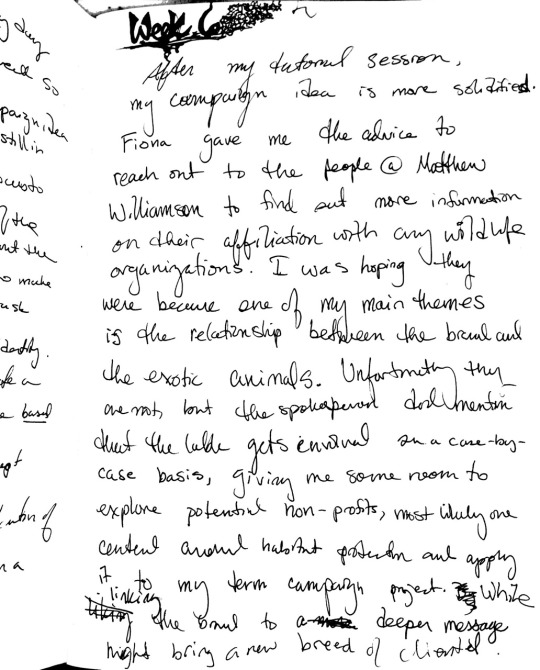 Week 6
After my tutorial session,
my campaign idea is more solidified.
Fiona gave me the advice to
reach out to the people @ Matthew
Williamson to find out more information
on their affiliation with any wildlife
organizations. I was hoping they
were because one of my main themes
is the relationship between the brand and
the exotic animals. Unfortunately they
are not, but the spokesperson did mention
that the label gets involved on a case-by-
case basis, giving me some room to
explore potential non-profits, most likely one
centered around habitat protection and apply
it to my term campaign project. While
linking the brand to a deeper message
might bring a new breed of clientel.
paign idea
still in
of the
to make
ask
identity.
based